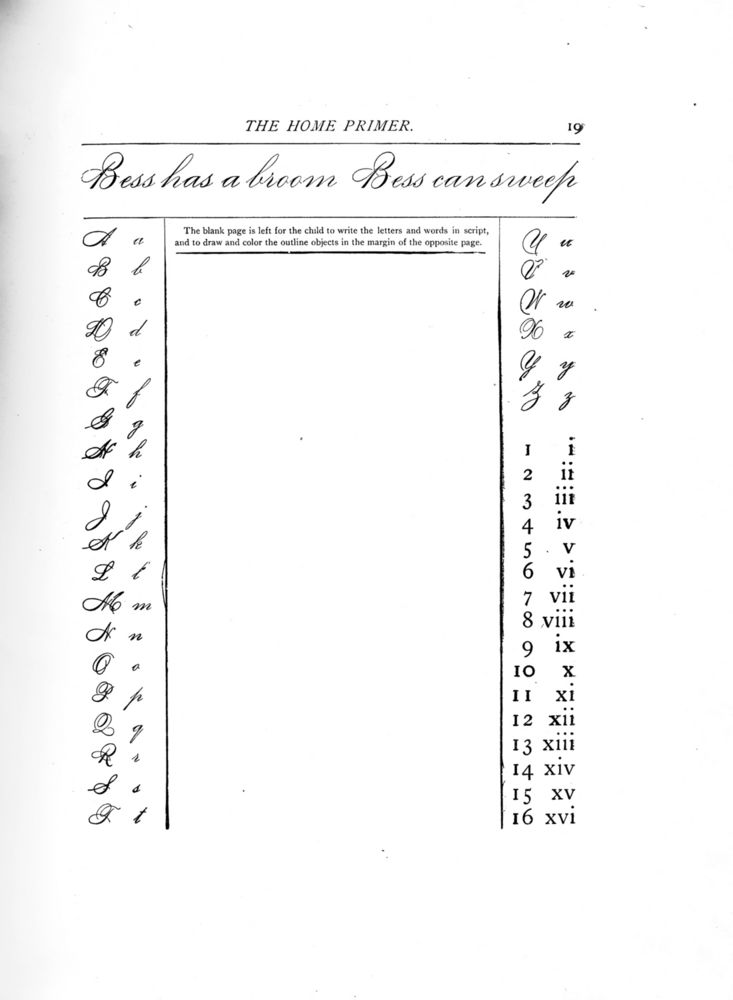 THE HOME PRIMER. 19
Bess has a broom Bess can sweep
The blank page is left for the child to write the letters and words in script,
and to draw and color the outline objects in the margin of the opposite page.
A a
B b
C c
D d
E e
F f
G g
H h
I i
J j
K k
L l
M m
N n
O o
P p
Q q
R r
S s
T t
U u
V v
W w
X x
Y y
Z z
1 i
2 ii
3 iii
4 iv
5 v
6 vi
7 vii
8 viii
9 ix
10 x
11 xi
12 xii
13 xiii
14 xiv
15 xv
16 xvi